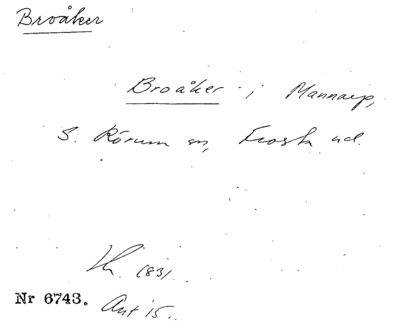 Broåker
Broåker i Mannarp,
S. Rörum sn, Frosta hd.
Lh. 1831
Nr 6743. Ant 15.